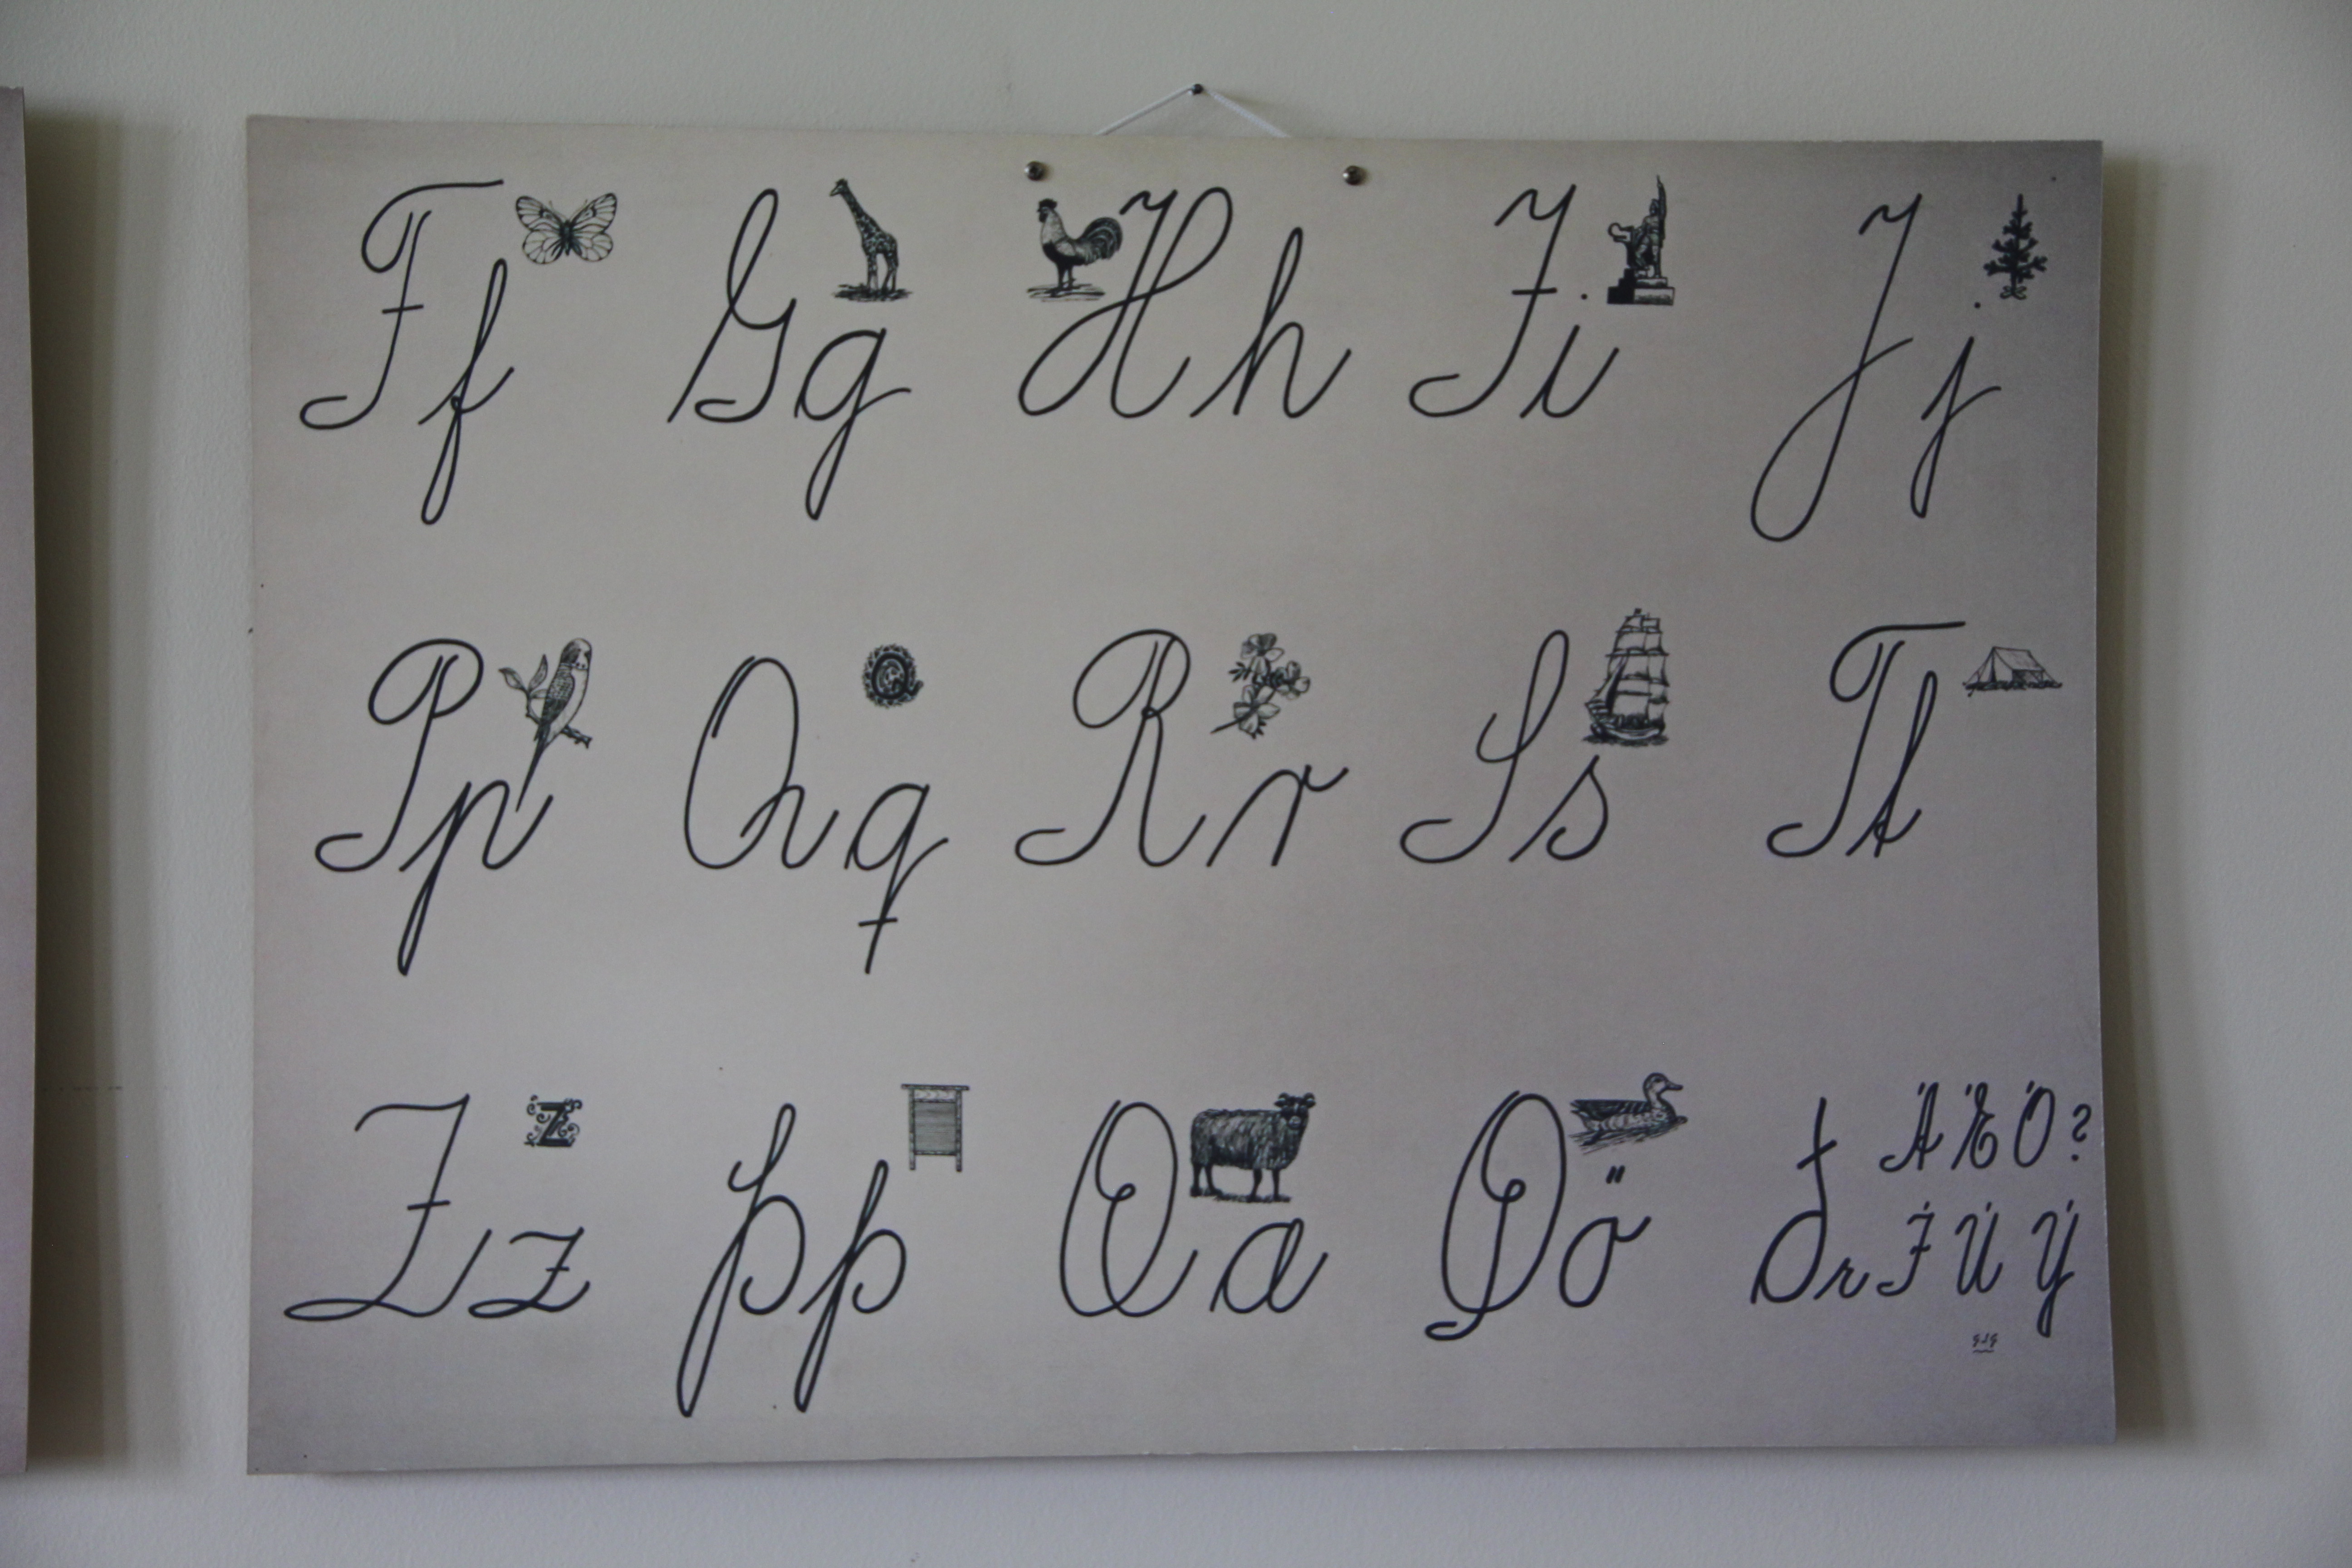 Ff Gg Hh Ii Jj
Pp Qq Q Rr Ss Tt
Zz Z Þþ Ææ Öö
Á É Ó ?
ð r Í Ú Ý